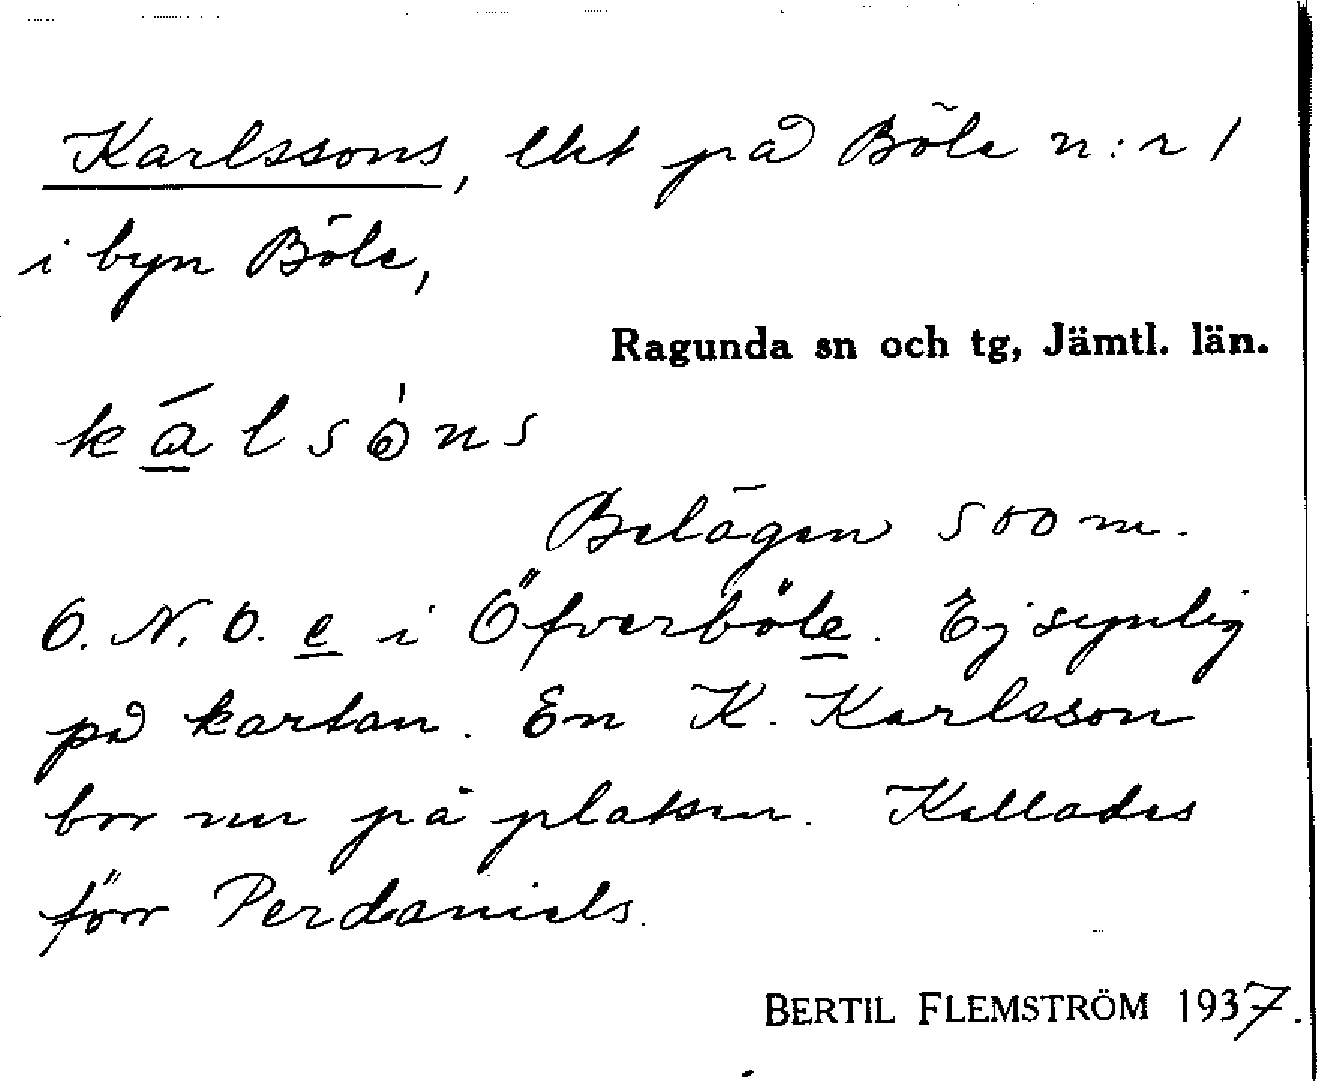 Karlssons, lht på Böle n:r 1
i byn Böle,
Ragunda sn och tg, Jämtl. län.
kálsòns
Belägen 500 m.
O.N.O. e i Öfverböle. Ej synlig
på kartan. En K. Karlsson
bor nu på platsen. Kallades
förr Perdaniels.
BERTIL FLEMSTRÖM 1937.